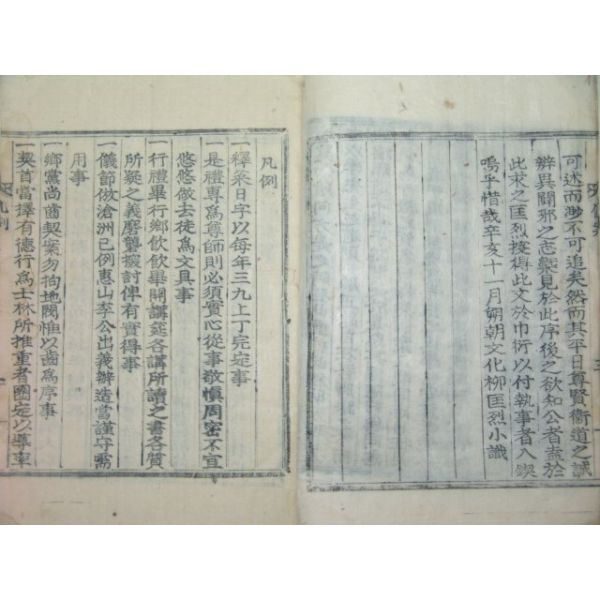 可述而渺不可追矣然而其平日尊賢衛道之誠
辨異闢邪之志槩見於此序後之欲知公者盍於
此求之匡烈搜得此文於巾衍以付執事者入梓
嗚乎惜哉辛亥十一月朔朝文化柳匡烈小識
凡例
一釋菜日字以每年三九上丁完定事
一是禮專爲尊師則必須實心從事敬愼周密不宜
悠悠做去徒爲文具事
一行禮畢行鄉飮飮畢開講筵各講所讀之書各質
所疑之義磨礱探討俾有實得事
一儀節倣滄洲已例惠山李公出義辦造當謹守需
用事
一鄉黨尚齒契案勿拘地閥惟以齒爲序事
一契首當擇有德行爲士林所推重者圈定以導率
凡例